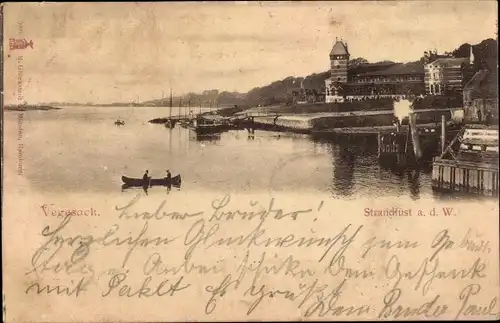 Vegesack.
Strandlust a. d. W.
Lieber Brüder!
Herzlichen Glückwunsch zum Geburts
tag. Anbei schicke Dir ein Geschenk
mit Paket. Es grüßt Dein Bruder Paul